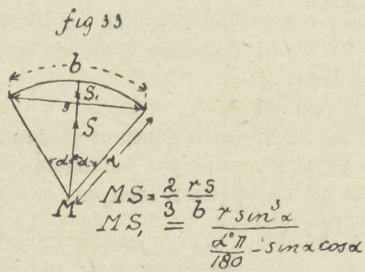 fig 33
b
S₁
s
S
α° α° r
M
MS = 2/3 rs/b
MS₁ = r sin³ α / (α°π/180 - sin α cos α)